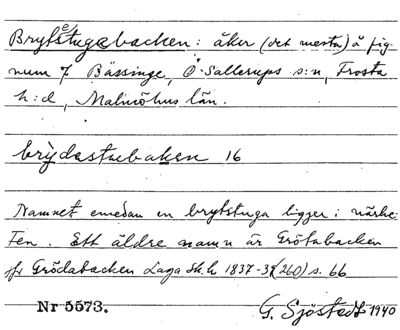 Brytstugebacken: åker (det mesta) å fig.
num 7 Bässinge, Ö. Sallerups s:n, Frosta
h:d, Malmöhus län.
brydastuebaken 16
Namnet emedan en brytstuga ligger i närhe-
ten. Ett äldre namn är Grötabacken
jfr Grödabacken Laga Sk. h 1837-39 (260) s. 66
Nr 5573. G. Sjöstedt 1940